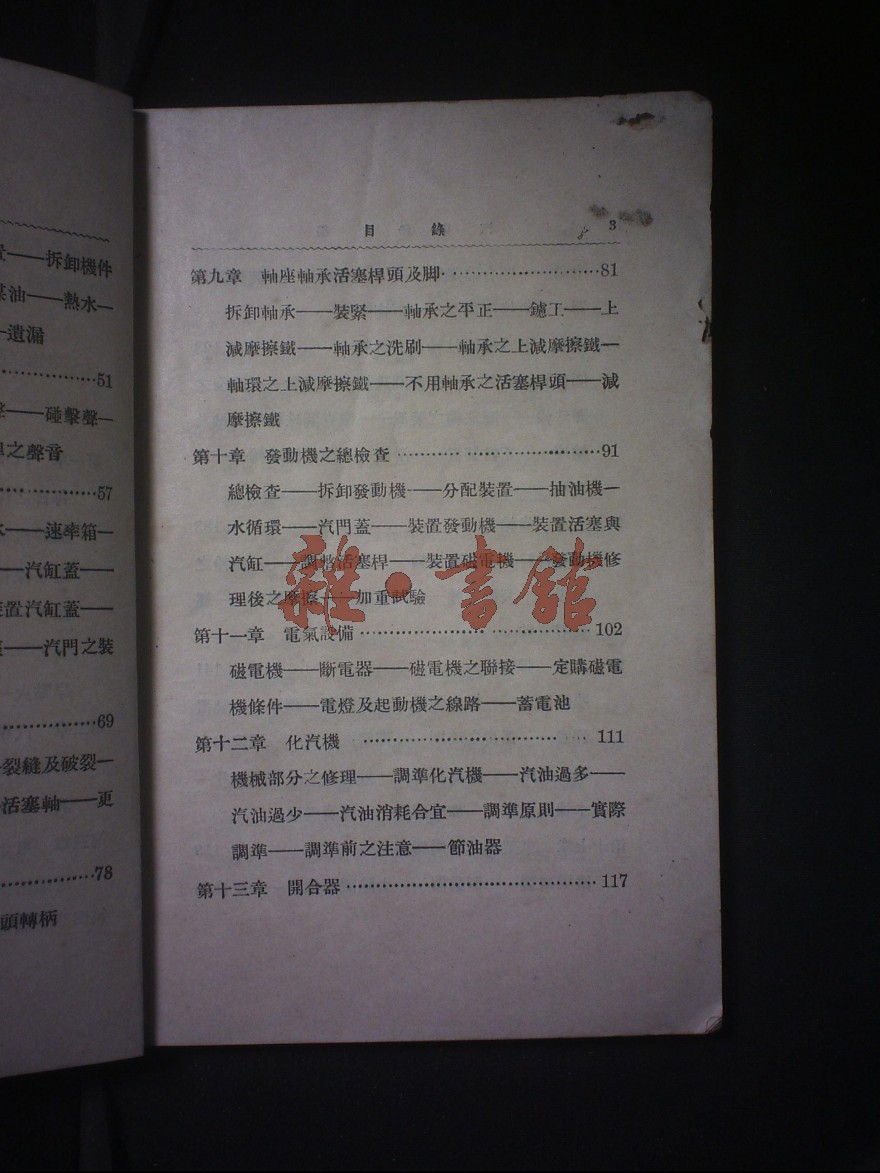 拆卸機件
煤油——熱水—
遺漏
51
——碰擊聲—
之聲音
57
——速率箱—
——汽缸蓋——
裝置汽缸蓋——
——汽門之裝
69
裂縫及破裂—
活塞軸——更
78
頭轉柄
目錄 3
第九章 軸座軸承活塞桿頭及脚……………………81
拆卸軸承——裝緊——軸承之平正——鑢工——上
減摩擦鐵——軸承之洗刷——軸承之上減摩擦鐵—
軸環之上減摩擦鐵——不用軸承之活塞桿頭——減
摩擦鐵
第十章 發動機之總檢查……………………91
總檢查——拆卸發動機——分配裝置——抽油機—
水循環——汽門蓋——裝置發動機——裝置活塞與
汽缸——調整活塞桿——裝置磁電機——發動機修
理後之摩擦——加重試驗
第十一章 電氣設備……………………102
磁電機——斷電器——磁電機之聯接——定購磁電
機條件——電燈及起動機之線路——蓄電池
第十二章 化汽機……………………111
機械部分之修理——調準化汽機——汽油過多——
汽油過少——汽油消耗合宜——調準原則——實際
調準——調準前之注意——節油器
第十三章 開合器……………………117
雜·書館